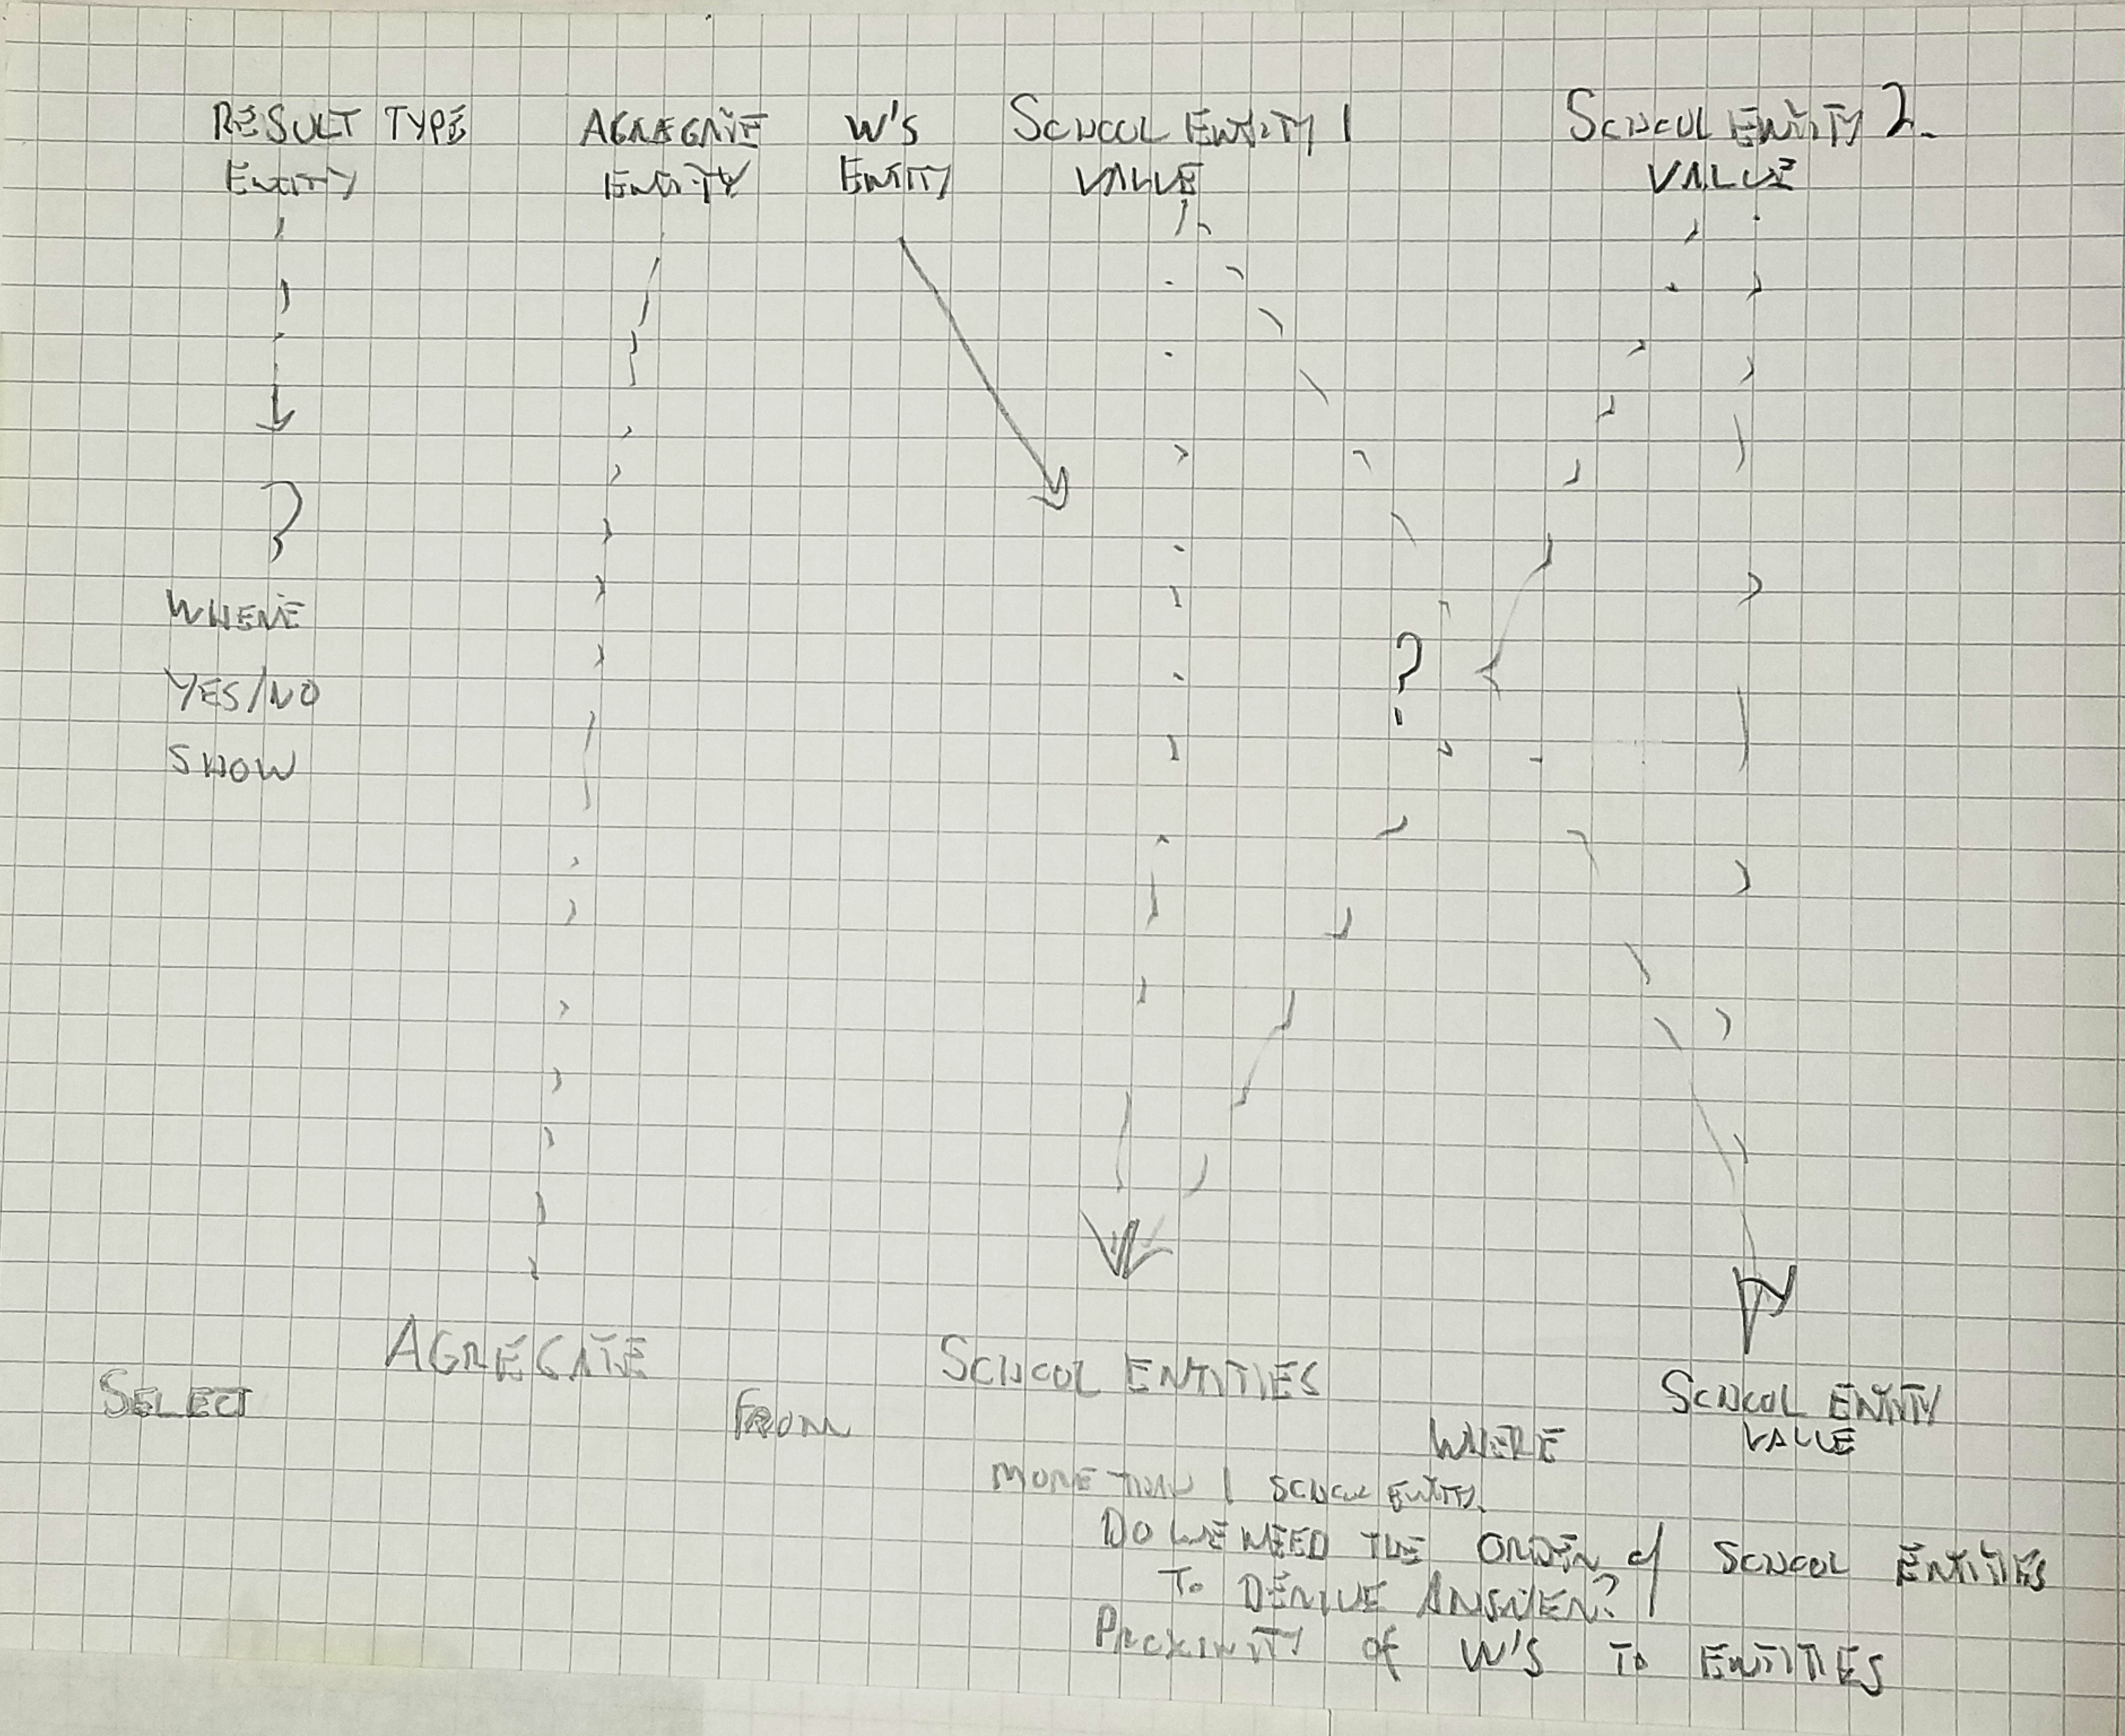 RESULT TYPE
ENTITY
AGRAEGATE
ENTITY
W'S
ENTITY
SCHOOL ENTITY 1
VALUE
SCHOOL ENTITY 2
VALUE
?
WHERE
YES/NO
SHOW
?
SELECT
AGREGATE
FROM
SCHOOL ENTITIES
WHERE
SCHOOL ENTITY
VALUE
MORE THAN 1 SCHOOL ENTITY
DO WE NEED THE ORDER of SCHOOL ENTITIES
To DERIVE ANSWER?
PROXIMITY of W'S To ENTITIES